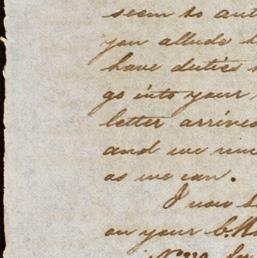 seem to aut
you allude t
have duties
go into your
letter arrived
and we mu
as we can.
I now
on your